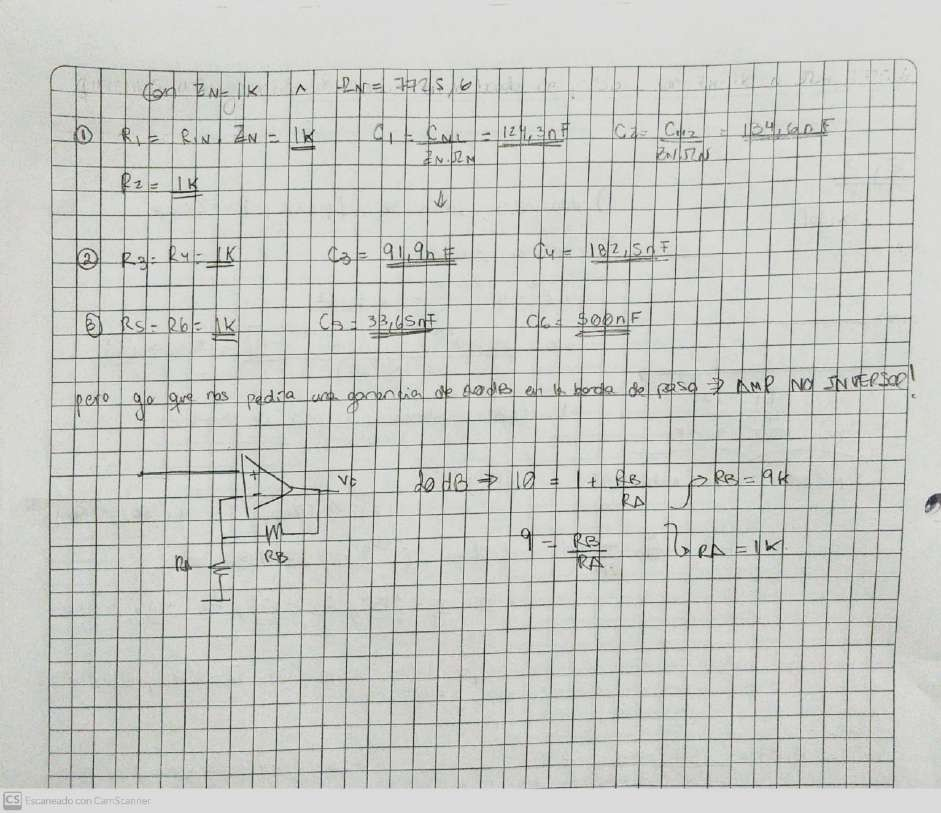 Con ZN=1K ∧ ΩN= 7725,6
① R1 = R1N . ZN = 1K C1 = CN1 / ZN.ΩN = 124,3nF C2 = CN2 / ZN.ΩN = 134,6nF
R2 = 1K
↓
② R3 = R4 = 1K C3 = 91,9nF C4 = 182,5nF
③ R5 = R6 = 1K C5 = 33,65nF C6 = 500nF
pero ya que nos pedia una ganancia de 20dB en la banda de paso ⇒ AMP NO INVERSOR!
+ - Vo
20dB ⇒ 10 = 1 + RB / RA RB = 9K
9 = RB / RA RA = 1K
RA RB
CS Escaneado con CamScanner